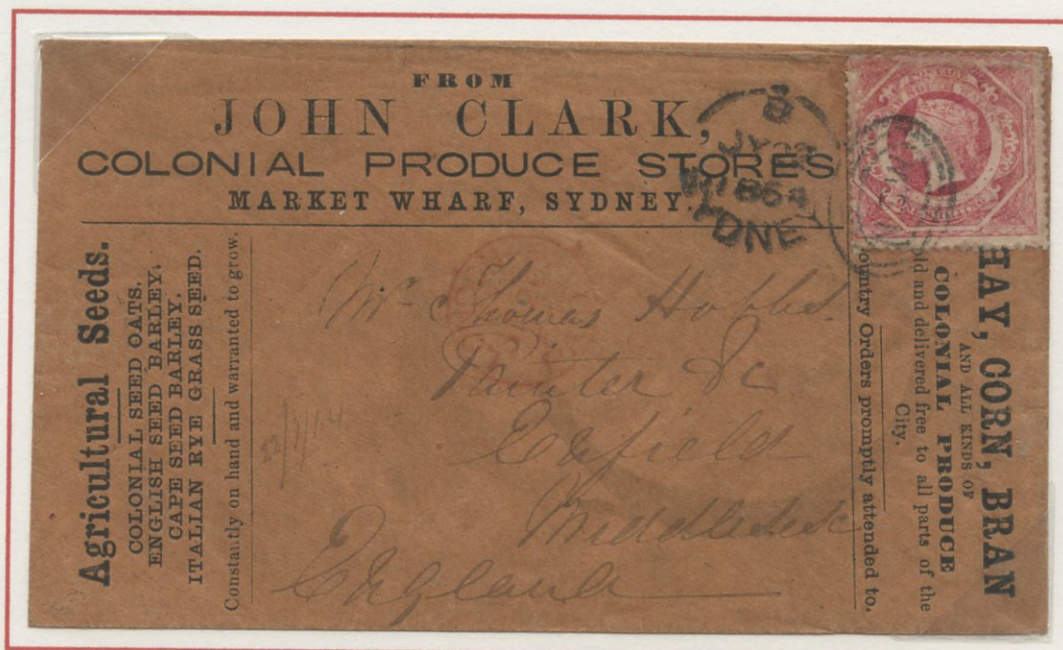 FROM
JOHN CLARK,
COLONIAL PRODUCE STORES
MARKET WHARF, SYDNEY.
Agricultural Seeds.
COLONIAL SEED OATS.
ENGLISH SEED BARLEY.
CAPE SEED BARLEY.
ITALIAN RYE GRASS SEED.
Constantly on hand and warranted to grow.
Mr Thomas
Painter &c
Enfield
Middlesex
England
HAY, CORN, BRAN
AND ALL KINDS OF
COLONIAL PRODUCE
old and delivered free to all parts of the
City.
ountry Orders promptly attended to.
JY 22
1864
POSTAGE